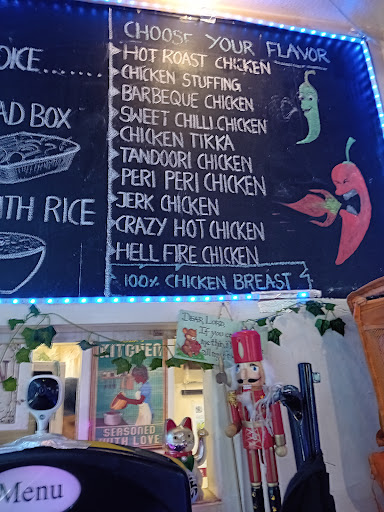 CHOOSE YOUR FLAVOR
HOT ROAST CHICKEN
CHICKEN STUFFING
BARBEQUE CHICKEN
SWEET CHILLI CHICKEN
CHICKEN TIKKA
TANDOORI CHICKEN
PERI PERI CHICKEN
JERK CHICKEN
CRAZY HOT CHICKEN
HELL FIRE CHICKEN
100% CHICKEN BREAST
OICE.........
AD BOX
ITH RICE
DEAR LORD
If you
KITCHEN
SEASONED
WITH LOVE
Menu